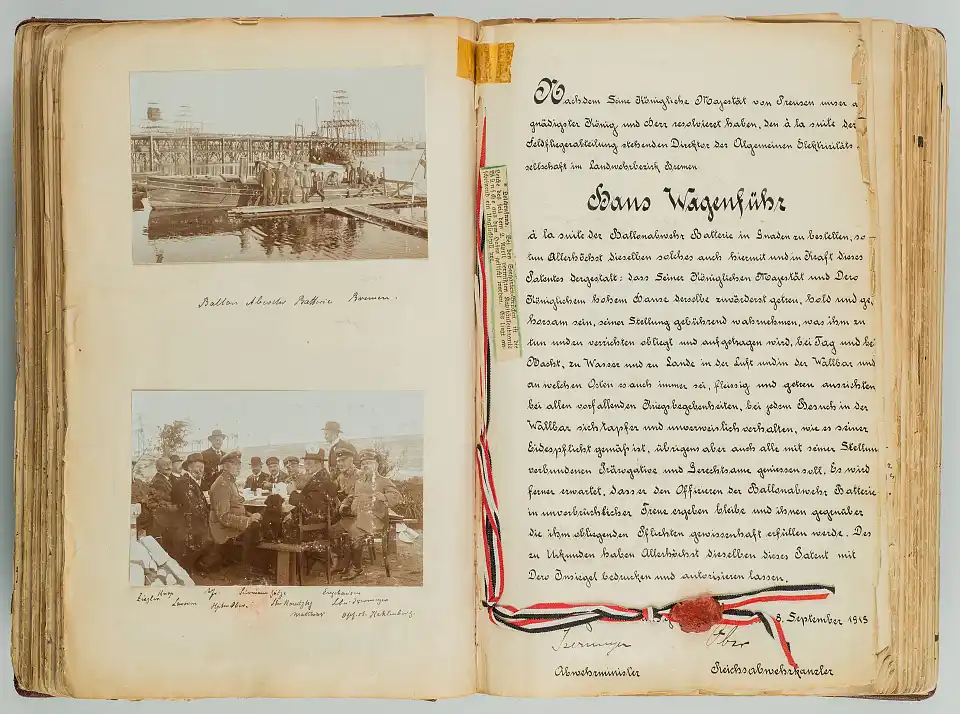 Ballon Abwehr Batterie Bremen.
Ziegler
Nachdem Seine Königliche Majestät von Preusen unser a
gnädigster König und Herr resolvieret haben, den à la suite der
Feldfliegerabteilung stehenden Direktor der Algemeinen Elektrizitäts-
sellschaft im Landwehrbezirk Bremen
Hans Wagenführ
à la suite der Ballonabwehr Batterie in Gnaden zu bestellen, so-
tun Allerhöchst dieselben solches auch hiermit und in Kraft dieses
Patentes dergestalt: dass Seiner Königlichen Majestät und Dero
Königlichem hohem Hause derselbe zuvörderst getreu, hold und ge,
horsam sein, seiner Stellung gebührend wahrnehmen, was ihm zu
tun und zu verrichten obliegt und aufgetragen wird, bei Tag und bei
Nacht, zu Wasser und zu Lande in der Luft und in der Wällbar und
an welchen Orten es auch immer sei, fleissig und getreu ausrichten
bei allen vorfallenden Kriegsbegebenheiten, bei jedem Besuch in der
Wällbar sich tapfer und unverweislich verhalten, wie es seiner
Eidespflicht gemäß ist, übrigens aber auch alle mit seiner Stellun
verbundenen Prärogative und Gerechtsame geniessen soll. Es wird
ferner erwartet, dass er den Offizieren der Ballonabwehr Batterie
in unverbrüchlicher Treue ergeben bleibe und ihnen gegenüber
die ihm obliegenden Pflichten gewissenhaft erfüllen werde. Des
zu Urkunden haben Allerhöchst dieselben dieses Patent mit
Dero Insiegel bedrucken und autorisieren lassen.
8. September 1915
Abwehrminister Reichsabwehrkanzler